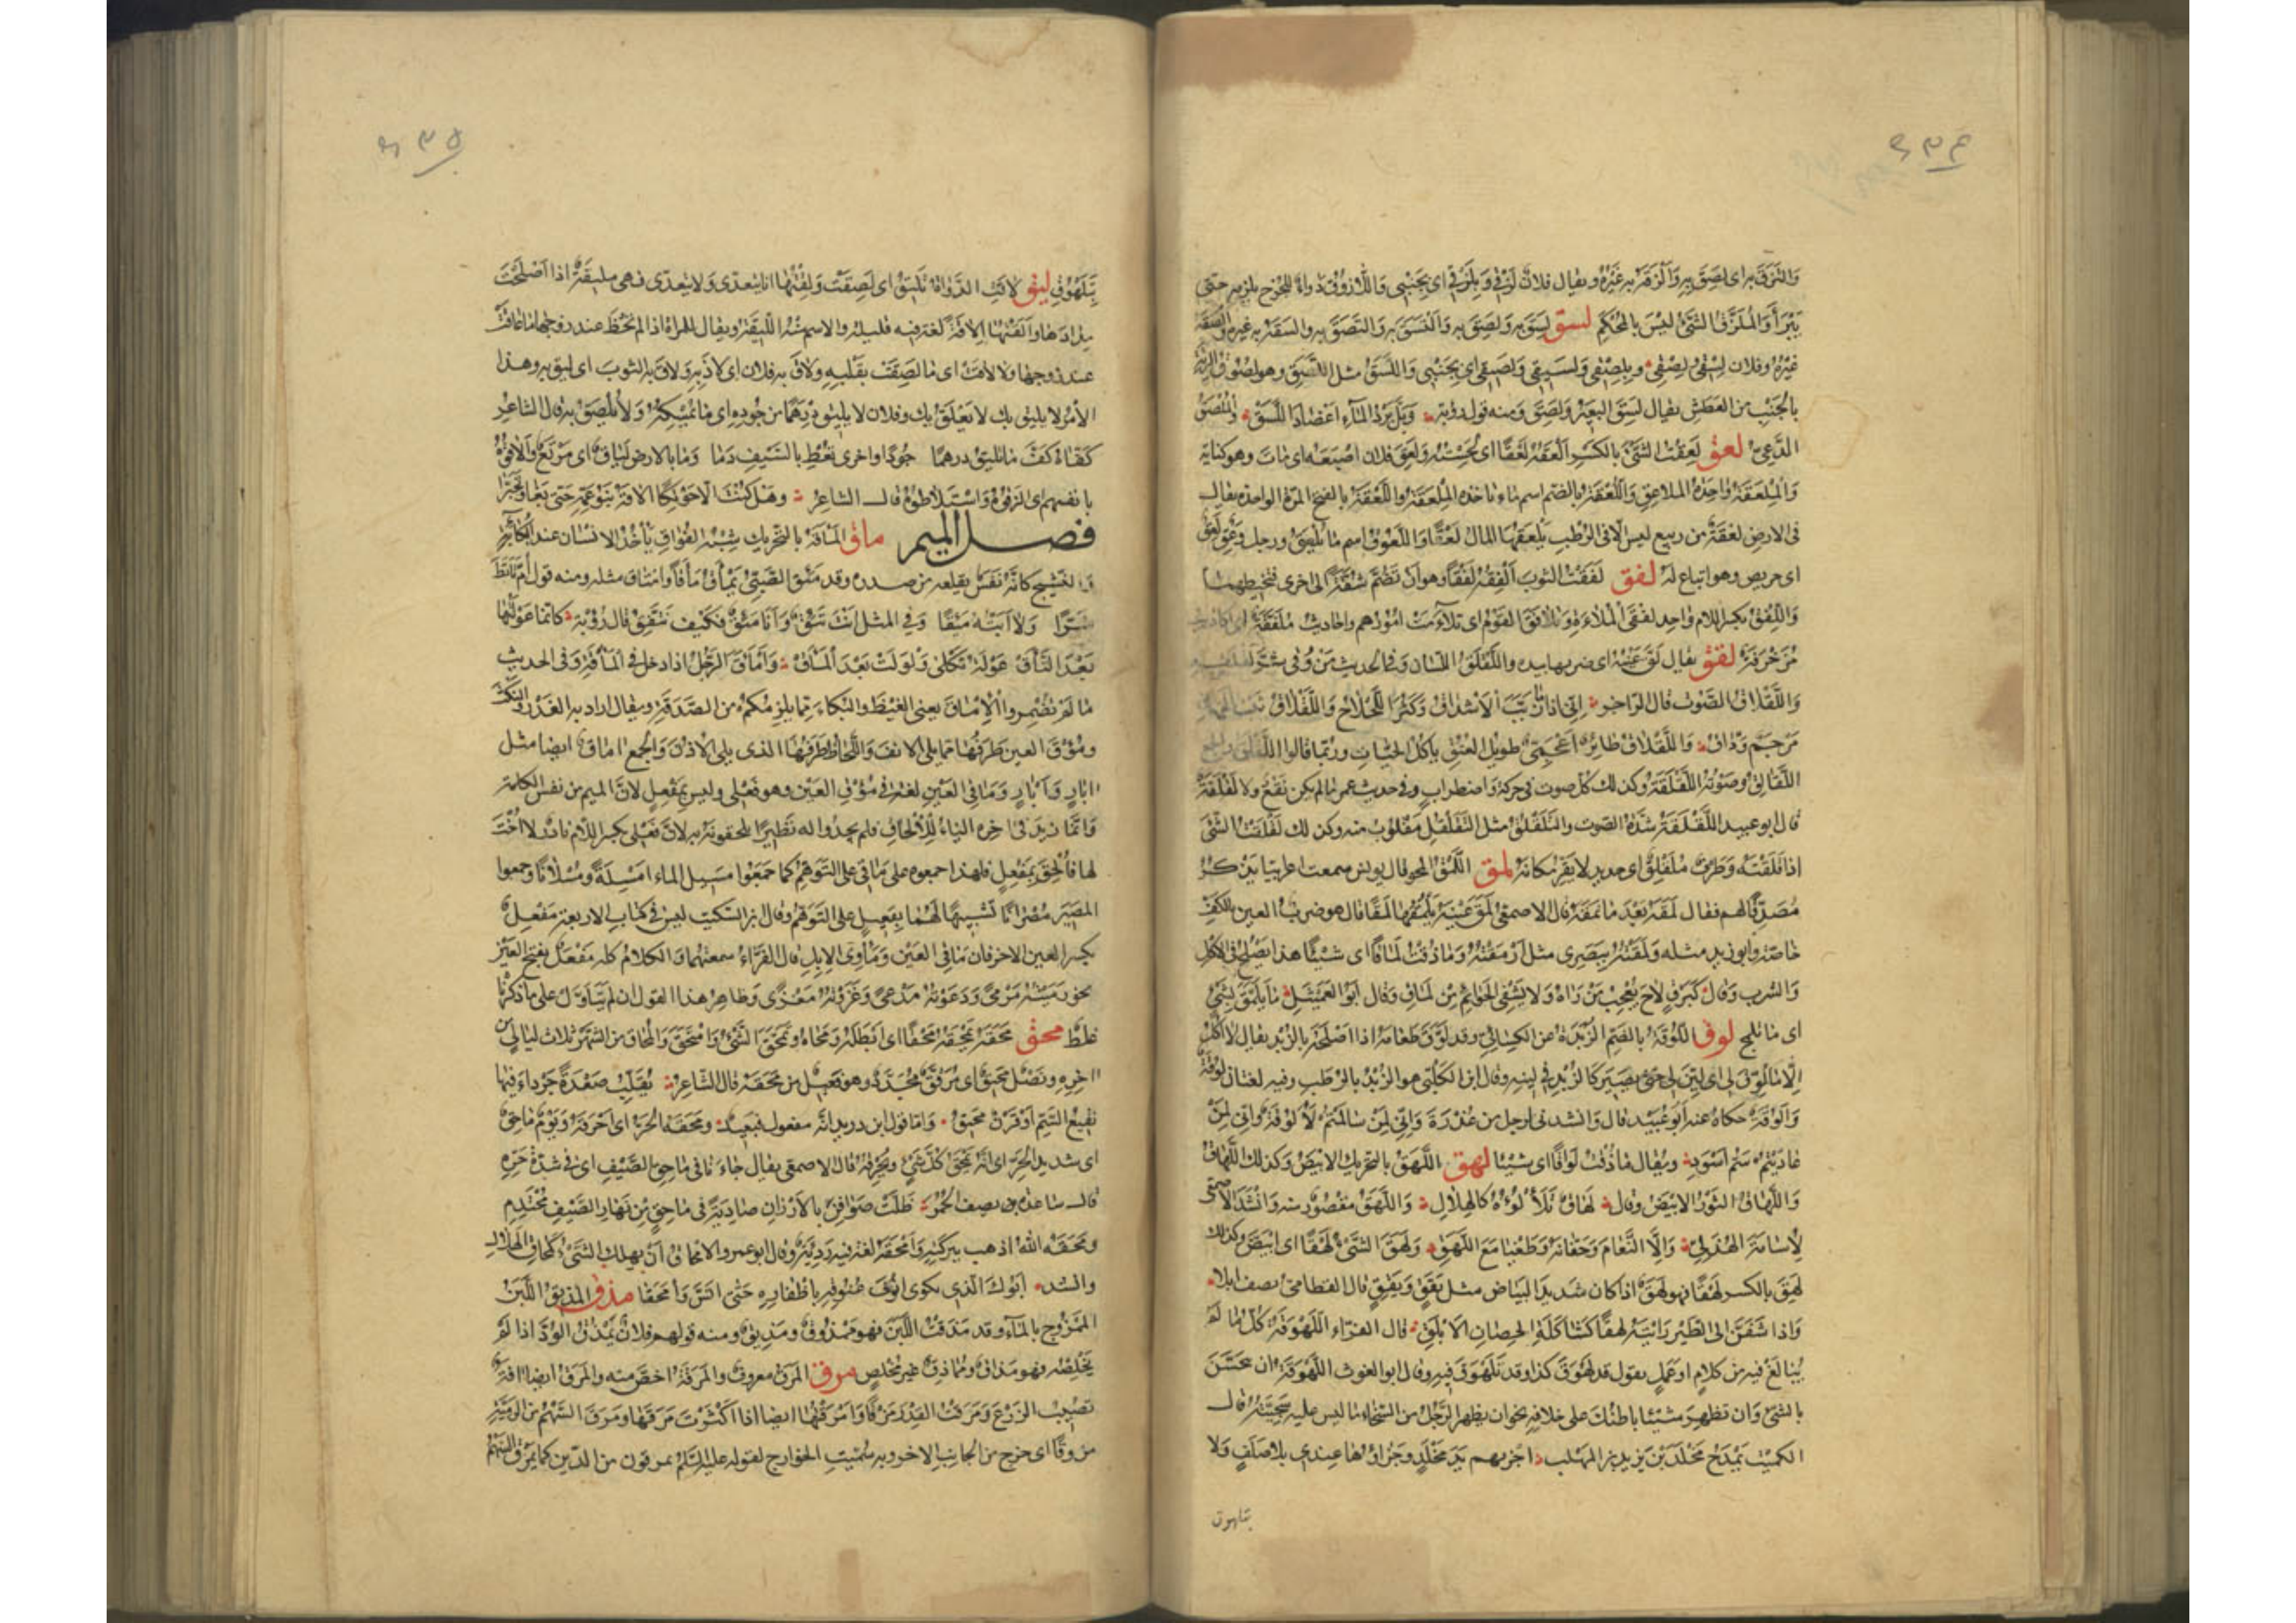 والتزق به اى لصق به والزقه به غيره ويقال فلان لزقى وبلزقى ولزيقى اى بجنبى واللازوق دواء للجرح يلزمه حتى
يبرأ والملزق الشئ ليس بالمحكم لسق لسق به ولصق به والتسق به والتصق به والسقه به غيره والصقه
غيره وفلان لسقى ولصقى وبلصقى ولسيقى ولصيقى اى بجنبى واللسق مثل اللصق وهو لصوق الرئة
بالجنب من العطش يقال لسق البعير ولصق ومنه قول رؤبة وبل برد الماء اعضاد اللسق والملصق
الدعى لعق لعقت الشئ بالكسر العقه لعقا اى لحسته ولعق فلان اصبعه اى مات وهو كناية
والملعقة واحدة الملاعق واللعقة بالضم اسم ما تاخذه الملعقة واللعقة بالفتح المرة الواحدة يقال
فى الارض لعقة من ربيع ليس الا فى الرطب يلعقها المال لعقا واللعوق اسم ما يلعق ورجل وعق لعق
اى حريص وهو اتباع له لفق لفقت الثوب الفقه لفقا وهو ان تضم شقة الى اخرى فتخيطهما
واللفق بكسر اللام واحد لفقى الملاءة وتلافق القوم اى تلاءمت امورهم واحاديث ملفقة اى اكاذيب
مزخرفة لقق يقال لق عينه اى ضربها بيده واللقلق اللسان وفى الحديث من وقى شر لقلقه
واللقلاق الصوت قال الراجز انى اذا ما زبب الاشداق وكثر اللجلاج واللقلاق ثبت الجنان
مرجم وداق واللقلاق طائر اعجمى طويل العنق ياكل الحيات وربما قالوا اللقلق والجمع
اللقالق وصوته اللقلقة وكذلك كل صوت فى حركة واضطراب وفى حديث عمر ما لم يكن نقع ولا لقلقة
قال ابو عبيد اللقلقة شدة الصوت والتلقلق مثل التقلقل مقلوب منه وكذلك لقلقت الشئ
اذا قلقلته وطرف ملقلق اى حديد لا يقر مكانه لمق اللمق المحو قال يونس سمعت اعرابيا يذكر
مصدقا لهم فقال لمقه بعد ما نمقه قال الاصمعى لمق عينه يلمقها لمقا قال هو ضرب العين بالكف
خاصة وابو زيد مثله ولمقته ببصرى مثل رمقته وما ذقت لماقا اى شيئا هذا يصلح فى الاكل
والشرب وقال كبرق لاح يعجب من راه ولا يشفى الحوائم من لماق وقال ابو العميثل ما يلمق بشئ
اى ما تلمج لوق اللوقة بالضم الزبدة عن الكسائى وقد لوق طعامه اذا اصلحه بالزبد يقال لا اكل
الا ما لوق لى اى لين لى حتى يصير كالزبد فى لينه وقال ابن الكلبى هو الزبد بالرطب وفيه لغتان لوقة
والوقة حكاه عنه ابو عبيد قال وانشدنى رجل من عذرة وانى لمن سالمتم لالوقة وانى لمن
عاديتم سم اسود ويقال ما ذقت لواقا اى شيئا لهق اللهق بالتحريك الابيض وكذلك اللهاق
واللهاق الثور الابيض وقال لهاق تلألؤه كالهلال واللهق مقصور منه وانشد الاصمعى
لاسامة الهذلى والا النعام وحفانه وطغيا مع اللهق ولهق الشئ لهقا اى ابيض وكذلك
لهق بالكسر لهقا فهو لهق اذا كان شديد البياض مثل يقق ويقق قال القطامى يصف ابلا
واذا شففن الى الطريق راينه لهقا كشاكلة الحصان الابلق قال الفراء اللهوقة كل ما لم
يبالغ فيه من كلام او عمل يقول قد لهوق كذا وقد تلهوق فيه وقال ابو الغوث اللهوقة ان تتحسن
بالشئ وان تظهر شيئا باطنك على خلافه نحو ان يظهر الرجل من السخاء ما ليس عليه سجيته قال
الكميت يمدح مخلد بن يزيد بن المهلب اجزيهم يد مخلد وجزاؤها عندى بلا صلف ولا
بتلهوق
بتلهوق ليق لاقت الدواة تليق اى لصقت ولقتها انا يتعدى ولا يتعدى فهى مليقة اذا اصلحت
مدادها والقتها الاقة لغة فيه قليلة والاسم منه الليقة ويقال للمراة اذا لم تحظ عند زوجها ما عاقت
عند زوجها ولا لاقت اى ما لصقت بقلبه ولاق به فلان اى لاذ به ولاق به الثوب اى لبق به وهذا
الامر لا يليق بك لا يعلق بك وفلان لا يليق درهما من جوده اى ما يمسكه ولا يلصق به قال الشاعر
كفاه كف ما تليق درهما جودا واخرى تعط بالسيف دما وما بالارض لياق اى مرتع والاقوه
بانفسهم اى الزقوه واستلاطوه قال الشاعر وهل كنت الا حوتكيا الاقه بنو عمه حتى بغى وتجبرا
فصل الميم ماق المأقة بالتحريك شبه الفواق يأخذ الانسان عند البكاء
والنشيج كانه نفس يقلعه من صدره وقد مئق الصبى يمأق مأقا وامتاق مثله ومنه قول ام تابط
شرا ولا ابته مئقا وفى المثل انت تئق وانا مئق فكيف نتفق قال رؤبة كانما عولتها
بعد التأق عولة ثكلى ولولت بعد المأق وأمأق الرجل اذا دخل فى المأقة وفى الحديث
ما لم تضمروا الامآق يعنى الغيظ والبكاء مما يلزمكم من الصدقة ويقال اراد به الغدر والنكث
ومؤق العين طرفها مما يلى الانف واللحاظ طرفها الذى يلى الاذن والجمع اماق ايضا مثل
ابار وأبار ومأقى العين لغة فى مؤق العين وهو فعلى وليس بمفعل لان الميم من نفس الكلمة
وانما زيد فى اخره الياء للالحاق فلم يجدوا له نظيرا يلحقونه به لان فعلى بكسر اللام نادر لا اخت
لها فالحق بمفعل فلهذا جمعوه على ماقى على التوهم كما جمعوا مسيل الماء امسلة ومسلانا وجمعوا
المصير مصرانا تشبيها لهما بفعيل على التوهم وقال ابن السكيت ليس فى ذوات الاربعة مفعل
بكسر العين الا حرفان مأقى العين ومأوى الابل قال الفراء سمعتهما والكلام كله مفعل بفتح العين
نحو رميته مرمى ودعوته مدعى وغزوته مغزى وظاهر هذا القول ان لم يتأول على ما ذكرنا
غلط محق محقه يمحقه محقا اى ابطله ومحاه وتمحق الشئ وامتحق والمحاق من الشهر ثلاث ليال من
اخره ونصل محيق اى مرقق محدد وهو فعيل من محقه قال الشاعر يقلب صعدة جرداء فيها
نقيع السم او قرن محيق واما قول ابن دريد انه مفعول فبعيد ومحقه الحر اى احرقه ويوم ماحق
اى شديد الحر اى انه يمحق كل شئ ويحرقه قال الاصمعى يقال جاءنا فى ماحق الصيف اى فى شدة حره
قال ساعدة يصف الحمر ظلت صوافن بالارزان صادية فى ماحق من نهار الصيف محتدم
ومحقه الله اذهب ببركته وامحقه لغة فيه رديئة وقال ابو عمرو الامحاق ان يهلك الشئ كمحاق الهلال
وانشد ابوك الذى يكوى انوف عنوقه باظفاره حتى انس وامحقا مذق المذيق اللبن
الممزوج بالماء وقد مذقت اللبن فهو ممذوق ومذيق ومنه قولهم فلان يمذق الود اذا لم
يخلصه فهو مذاق ومماذق غير مخلص مرق المرق معروف والمرقة اخص منه والمرق ايضا افة
تصيب الزرع ومرقت القدر مرقا وامرقتها ايضا اذا اكثرت مرقها ومرق السهم من الرمية
مروقا اى خرج من الجانب الاخر وبه سميت الخوارج لقوله عليه السلم يمرقون من الدين كما يمرق السهم